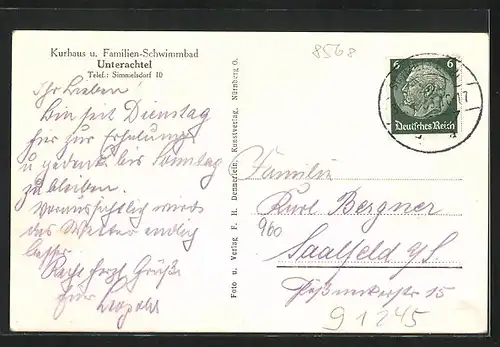 Kurhaus u. Familien-Schwimmbad
Unterachtel
Telef.: Simmelsdorf 10
Ihr Lieben!
Bin seit Dienstag
hier zur Erholung
u. gedenke bis Sonntag
zu bleiben.
Voraussichtlich wird
das Wetter endlich
besser.
Recht herzl. Grüße
Foto u. Verlag F. H. Dennerlein, Kunstverlag, Nürnberg O.
8568
6 6
Deutsches Reich
17
Familie
Karl Bergner
960
Saalfeld a/S.
15
91245